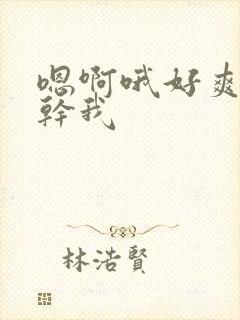 嗯啊哦好爽
幹我
林浩賢